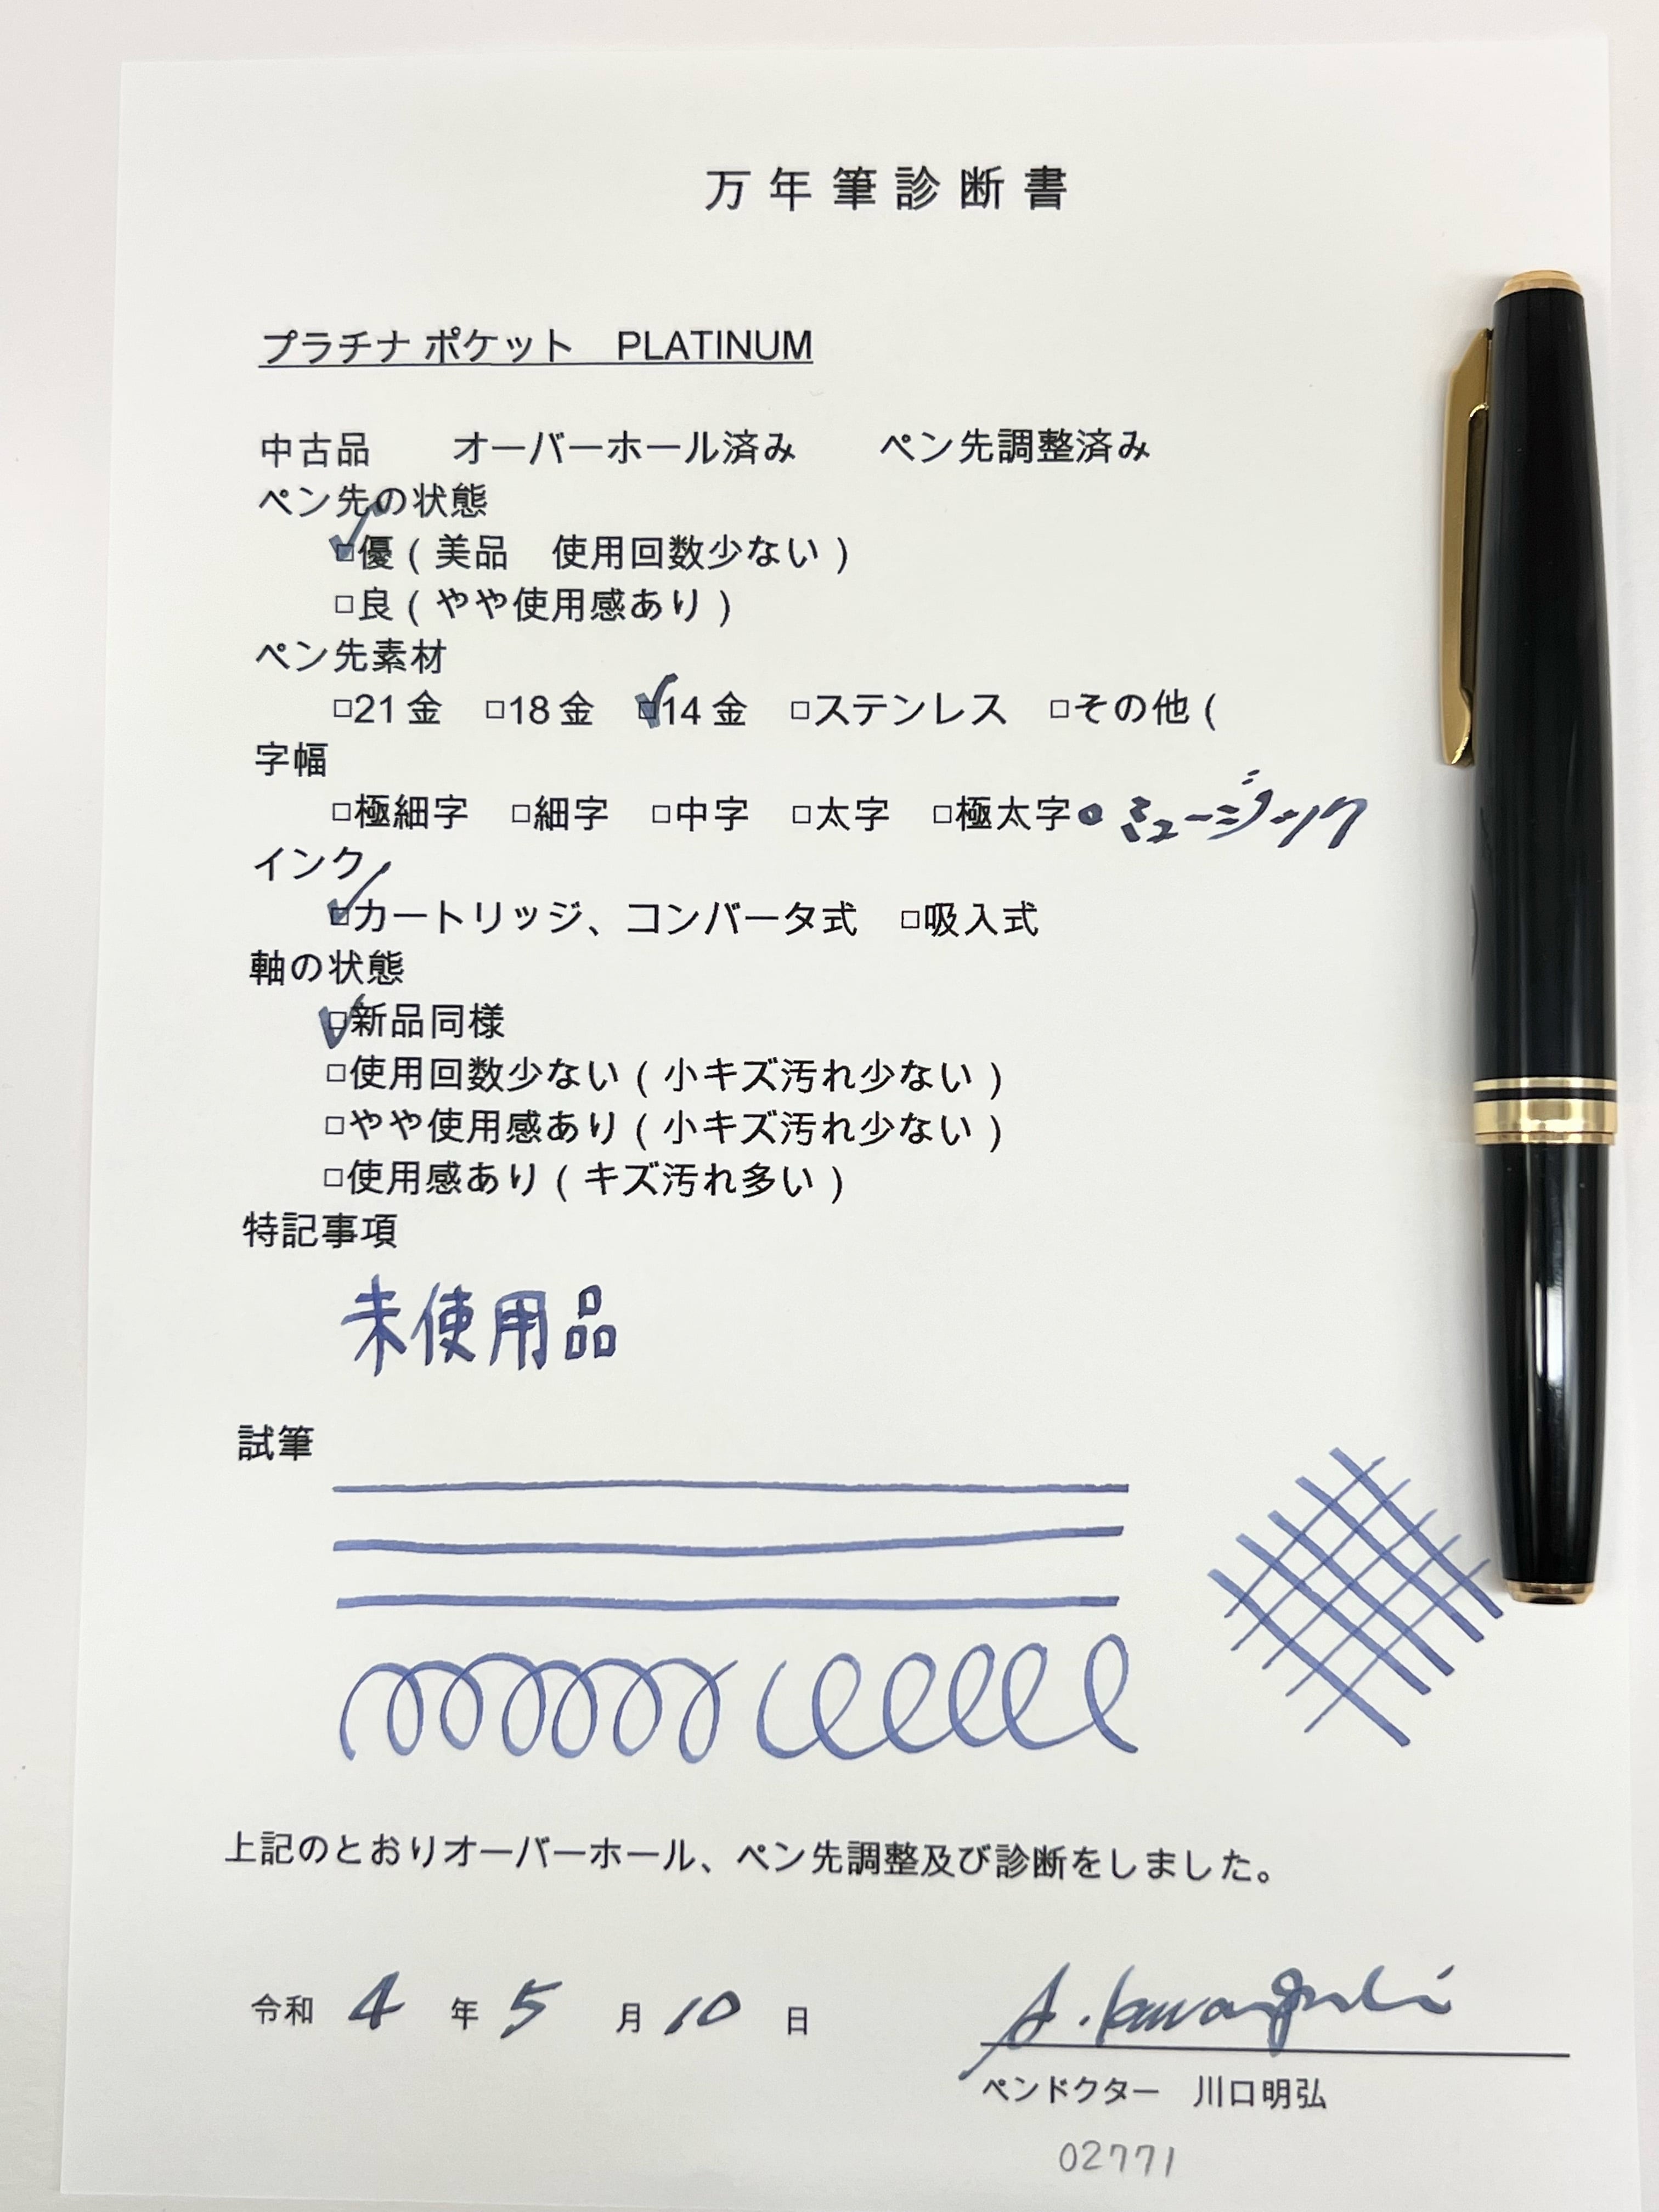 万年筆診断書
プラチナ ポケット　PLATINUM
中古品　　オーバーホール済み　　ペン先調整済み
ペン先の状態
☑優（美品　使用回数少ない）
□良（やや使用感あり）
ペン先素材
□21金　□18金　☑14金　□ステンレス　□その他（
字幅
□極細字　□細字　□中字　□太字　□極太字 ミュージック
インク
☑カートリッジ、コンバータ式　□吸入式
軸の状態
☑新品同様
□使用回数少ない（小キズ汚れ少ない）
□やや使用感あり（小キズ汚れ少ない）
□使用感あり（キズ汚れ多い）
特記事項
未使用品
試筆
上記のとおりオーバーホール、ペン先調整及び診断をしました。
令和 4 年 5 月 10 日
A. Kawaguchi
ペンドクター　川口明弘
02771